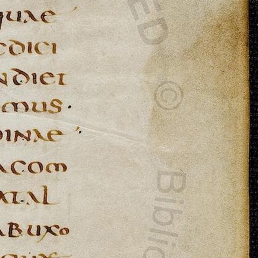 quae
edici
ndiet
mus.
dinae
acom
atal
abuxo
ED © Biblio